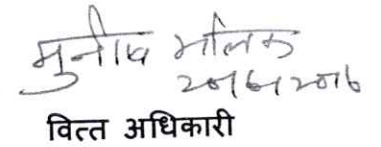 मुनीष मलिक
20/6/2016
वित्त अधिकारी